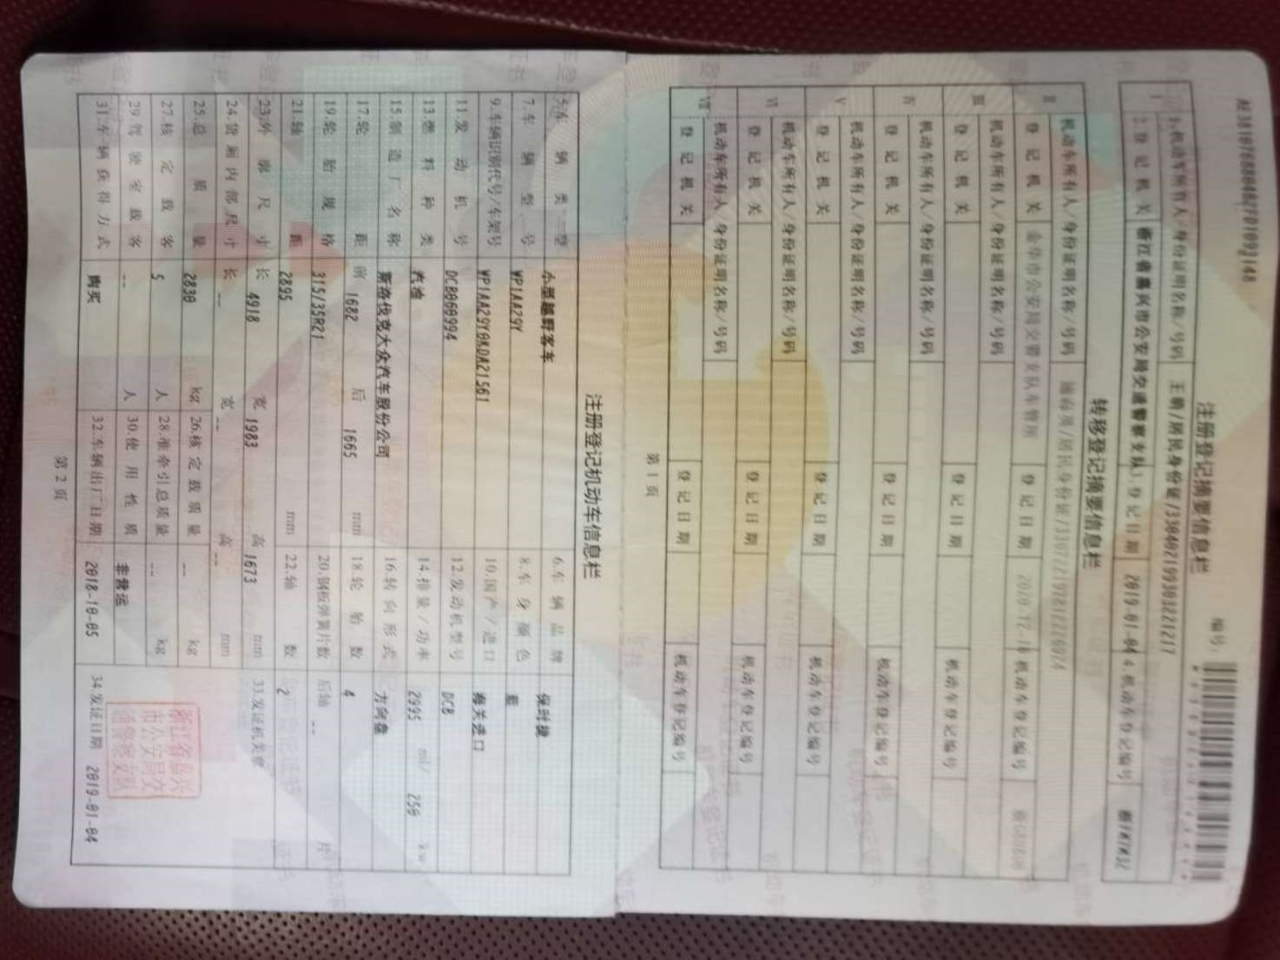 注册登记摘要信息栏
编号:
I
1.机动车所有人/身份证明名称/号码 王萌/居民身份证/330402199303221217
2.登记机关 浙江省嘉兴市公安局交通警察支队 3.登记日期 2019-01-04 4.机动车登记编号
转移登记摘要信息栏
II
机动车所有人/身份证明名称/号码
登记机关 金华市公安局交警支队车管所 登记日期 机动车登记编号
III
机动车所有人/身份证明名称/号码
登记机关 登记日期 机动车登记编号
IV
机动车所有人/身份证明名称/号码
登记机关 登记日期 机动车登记编号
V
机动车所有人/身份证明名称/号码
登记机关 登记日期 机动车登记编号
VI
机动车所有人/身份证明名称/号码
登记机关 登记日期 机动车登记编号
VII
机动车所有人/身份证明名称/号码
登记机关 登记日期 机动车登记编号
第1页
注册登记机动车信息栏
5.车辆类型 小型越野客车 6.车辆品牌 保时捷
7.车辆型号 WP1AA29Y 8.车身颜色
9.车辆识别代号/车架号 WP1AA29Y0KDA21561 10.国产/进口 海关进口
11.发动机号 DCB060994 12.发动机型号 DCB
13.燃料种类 汽油 14.排量/功率 2995 ml/ 250 kw
15.制造厂名称 斯洛伐克大众汽车股份公司 16.转向形式 方向盘
17.轮距 前 1682 后 1665 mm 18.轮胎数 4
19.轮胎规格 315/35R21 20.钢板弹簧片数 后轴 -- 片
21.轴距 2895 mm 22.轴数 2
23.外廓尺寸 长 4918 宽 1983 高 1673 mm 33.发证机关章
24.货厢内部尺寸 长 -- 宽 -- 高 -- mm
25.总质量 2830 kg 26.核定载质量 -- kg
27.核定载客 5 人 28.准牵引总质量 -- kg
29.驾驶室载客 -- 人 30.使用性质 非营运
31.车辆获得方式 购买 32.车辆出厂日期 2018-10-05 34.发证日期 2019-01-04
浙江省嘉兴
市公安局交
通警察支队
第2页